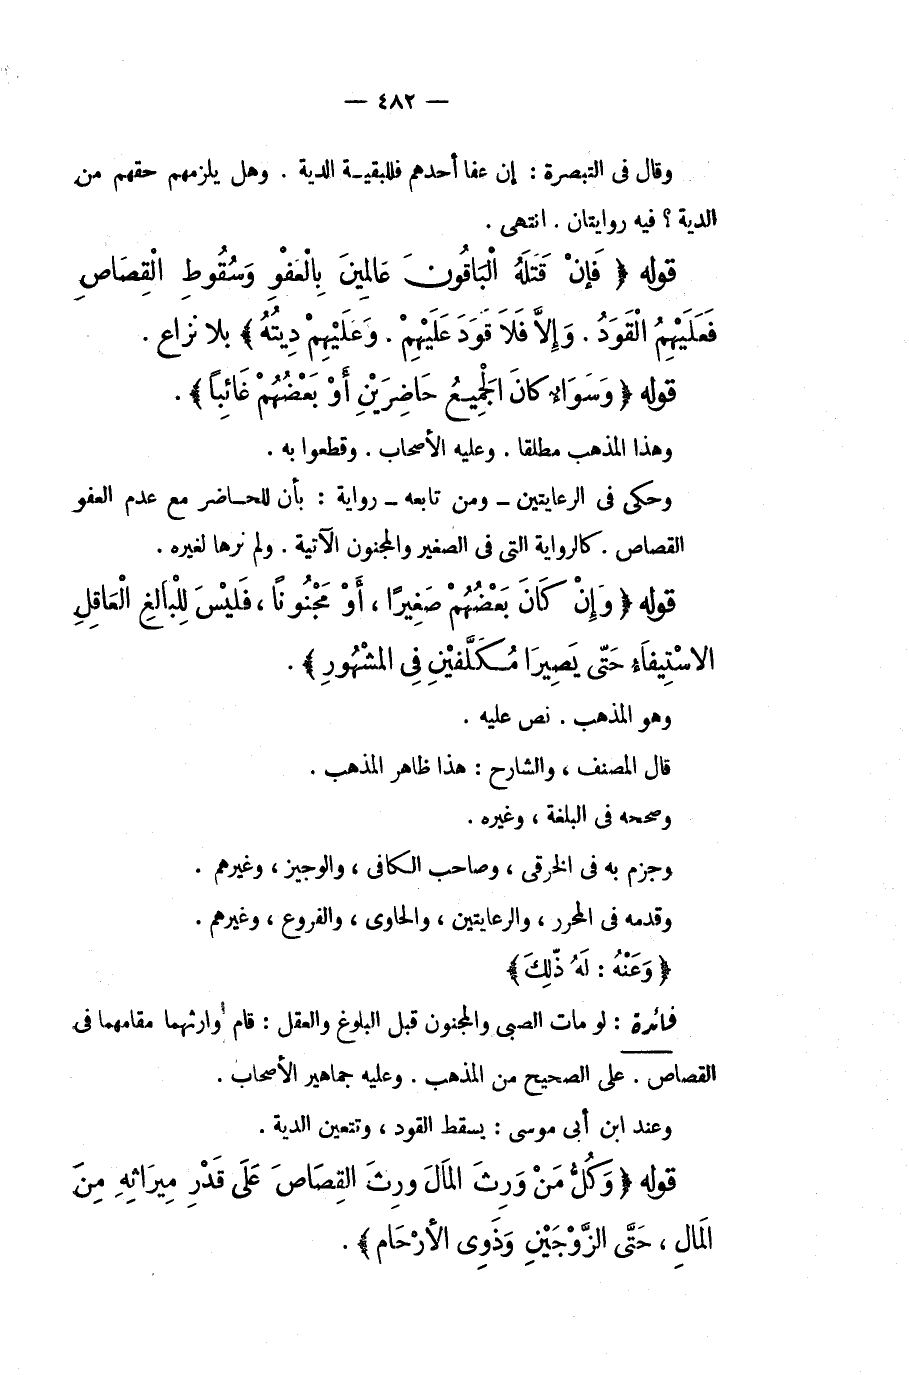 — ٤٨٢ —
وقال فى التبصرة : إن عفا أحدهم فللبقيـة الدية . وهل يلزمهم حقهم من
الدية ؟ فيه روايتان . انتهى .
قوله ﴿ فَإِنْ قَتَلَهُ الْبَاقُونَ عَالِمِينَ بِالْعَفْوِ وَسُقُوطِ الْقِصَاصِ
فَعَلَيْهِمُ الْقَوَدُ . وَإِلاَّ فَلاَ قَوَدَ عَلَيْهِمْ . وَعَلَيْهِمْ دِيتُهُ ﴾ بلا نزاع .
قوله ﴿ وَسَوَاءٌ كانَ الْجَمِيعُ حَاضِرَيْنِ أَوْ بَعْضُهُمْ غَائِبًا ﴾ .
وهذا المذهب مطلقا . وعليه الأصحاب . وقطعوا به .
وحكى فى الرعايتين ــ ومن تابعه ــ رواية : بأن للحـاضر مع عدم العفو
القصاص . كالرواية التى فى الصغير والمجنون الآتية . ولم نرها لغيره .
قوله ﴿ وَإِنْ كَانَ بَعْضُهُمْ صَغِيرًا ، أَوْ مَجْنُونًا ، فَلَيْسَ لِلْبَالغِ الْعَاقِلِ
الاسْتِيفَاء حَتّى يَصِيرَا مُكَلَّفيْنِ فِى المشْهُورِ ﴾ .
وهو المذهب . نص عليه .
قال المصنف ، والشارح : هذا ظاهر المذهب .
وصححه فى البلغة ، وغيره .
وجزم به فى الخرقى ، وصاحب الكافى ، والوجيز ، وغيرهم .
وقدمه فى المحرر ، والرعايتين ، والحاوى ، والفروع ، وغيرهم .
﴿ وَعَنْهُ : لَهُ ذّلِكَ ﴾
فائدة : لو مات الصبى والمجنون قبل البلوغ والعقل : قام وارثهما مقامهما فى
القصاص . على الصحيح من المذهب . وعليه جماهير الأصحاب .
وعند ابن أبى موسى : يسقط القود ، وتتعين الدية .
قوله ﴿ وَكُلُّ مَنْ وَرِثَ المَالَ ورِثَ القِصَاصَ عَلَى قَدْرِ مِيرَاثِهِ مِنَ
الَمالِ ، حَتَّى الزَّوْجَيْنِ وَذَوِى الأَرْحَام ﴾ .